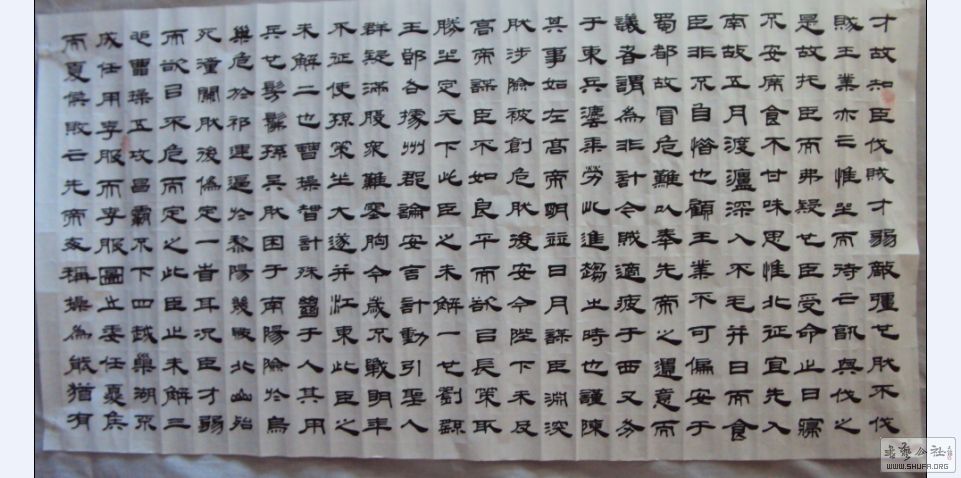 才故知臣伐賊才弱敵彊也然不伐
賊王業亦亡惟坐而待亡孰與伐之
是故托臣而弗疑也臣受命之日寢
不安席食不甘味思惟北征宜先入
南故五月渡瀘深入不毛并日而食
臣非不自惜也顧王業不可偏安于
蜀都故冒危難以奉先帝之遺意而
議者謂為非計今賊適疲于西又务
于東兵法乘勞此進趨之時也謹陳
其事如左高帝明並日月謀臣淵深
然涉險被創危然後安今陛下未及
高帝謀臣不如良平而欲以長策取
勝坐定天下此臣之未解一也劉繇
王郎各據州郡論安言計動引聖人
群疑滿腹眾難塞胸今歲不戰明年
不征使孫策坐大遂并江東此臣之
未解二也曹操智計殊絕于人其用
兵也髣髴孫吳然困于南陽險於烏
巢危於祁連逼於黎陽幾敗北山殆
死潼關然後偽定一時耳況臣才弱
而欲以不危而定之此臣之未解三
也曹操五攻昌霸不下四越巢湖不
成任用李服而李服圖之委任夏侯
而夏侯敗亡先帝每稱操為能猶有
书艺公社
WWW.SHUFA.ORG